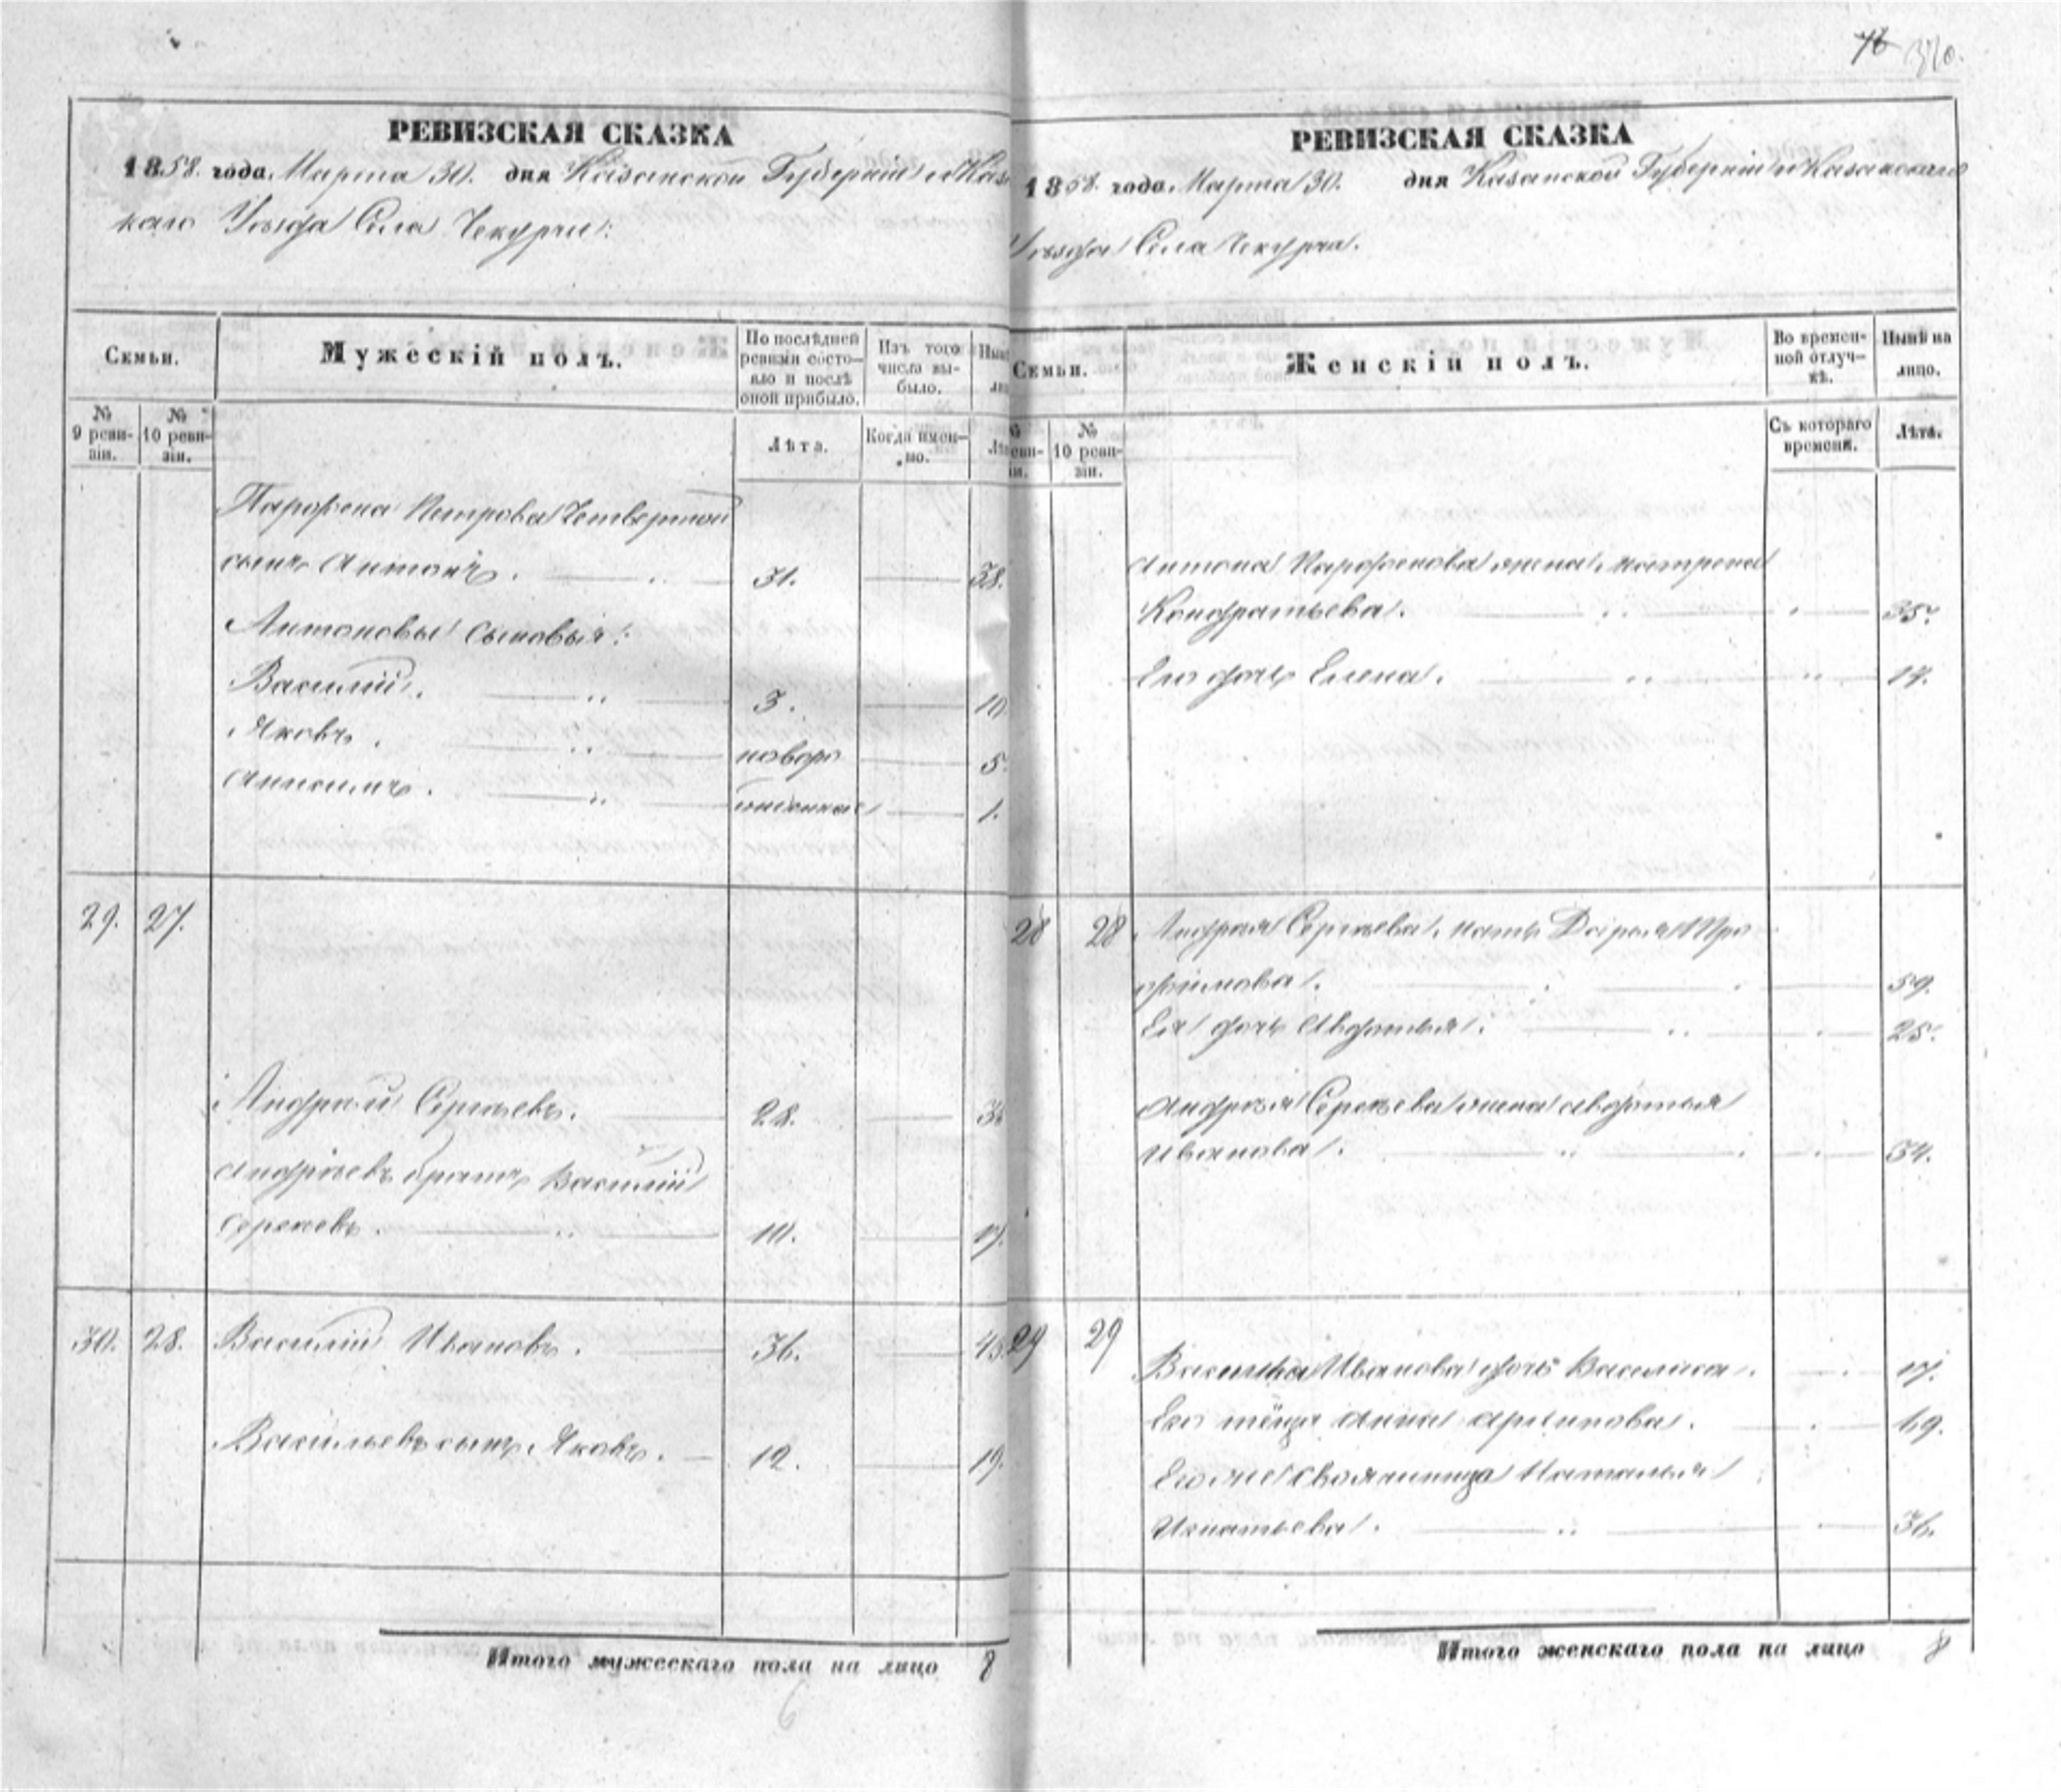 376.
РЕВИЗСКАЯ СКАЗКА
1858. года. Марта 30. дня Казанской Губерніи и Казанс
каго Уѣзда Села Чекурчи:
Семьи.
Мужескій полъ.
По послѣдней ревизіи состояло и послѣ оной прибыло.
Изъ того числа выбыло.
№ 9 ревизіи.
№ 10 ревизіи.
Лѣта.
Когда именно.
Парфена Петрова четвертой
сынъ Антонъ. 31. 38.
Антоновы сыновья:
Василій. 3. 10
Яковъ. новоро 5.
Анисимъ. 1.
29. 27.
Андрей Сергѣевъ. 28.
Андрѣевъ братъ Василій
Сергѣевъ. 10. 17.
30. 28. Василій Ивановъ. 36. 43.
Васильевъ сынъ Яковъ. 12. 19.
Итого мужескаго пола на лицо 8
6
РЕВИЗСКАЯ СКАЗКА
1858. года. Марта 30. дня Казанской Губерніи и Казанскаго
Уѣзда Села Чекурчи.
Семьи.
Женскій полъ.
Во временной отлучкѣ.
Нынѣ на лицо.
№ 10 ревизіи.
Съ котораго времени.
Лѣта.
Антона Парфенова жена Матрена
Кондратьева. 35.
Его дочь Елена. 17.
28 28 Андрея Сергѣева мать Дарья Тро
фимова. 59.
Ея дочь Авдотья. 25.
Андрея Сергѣева жена Авдотья
Иванова. 34.
29 29
Василья Иванова дочь Василиса. 17.
Его тёща Анна Архипова. 69.
Его же свояченица Наталья
Игнатьева. 36.
Итого женскаго пола на лицо 8